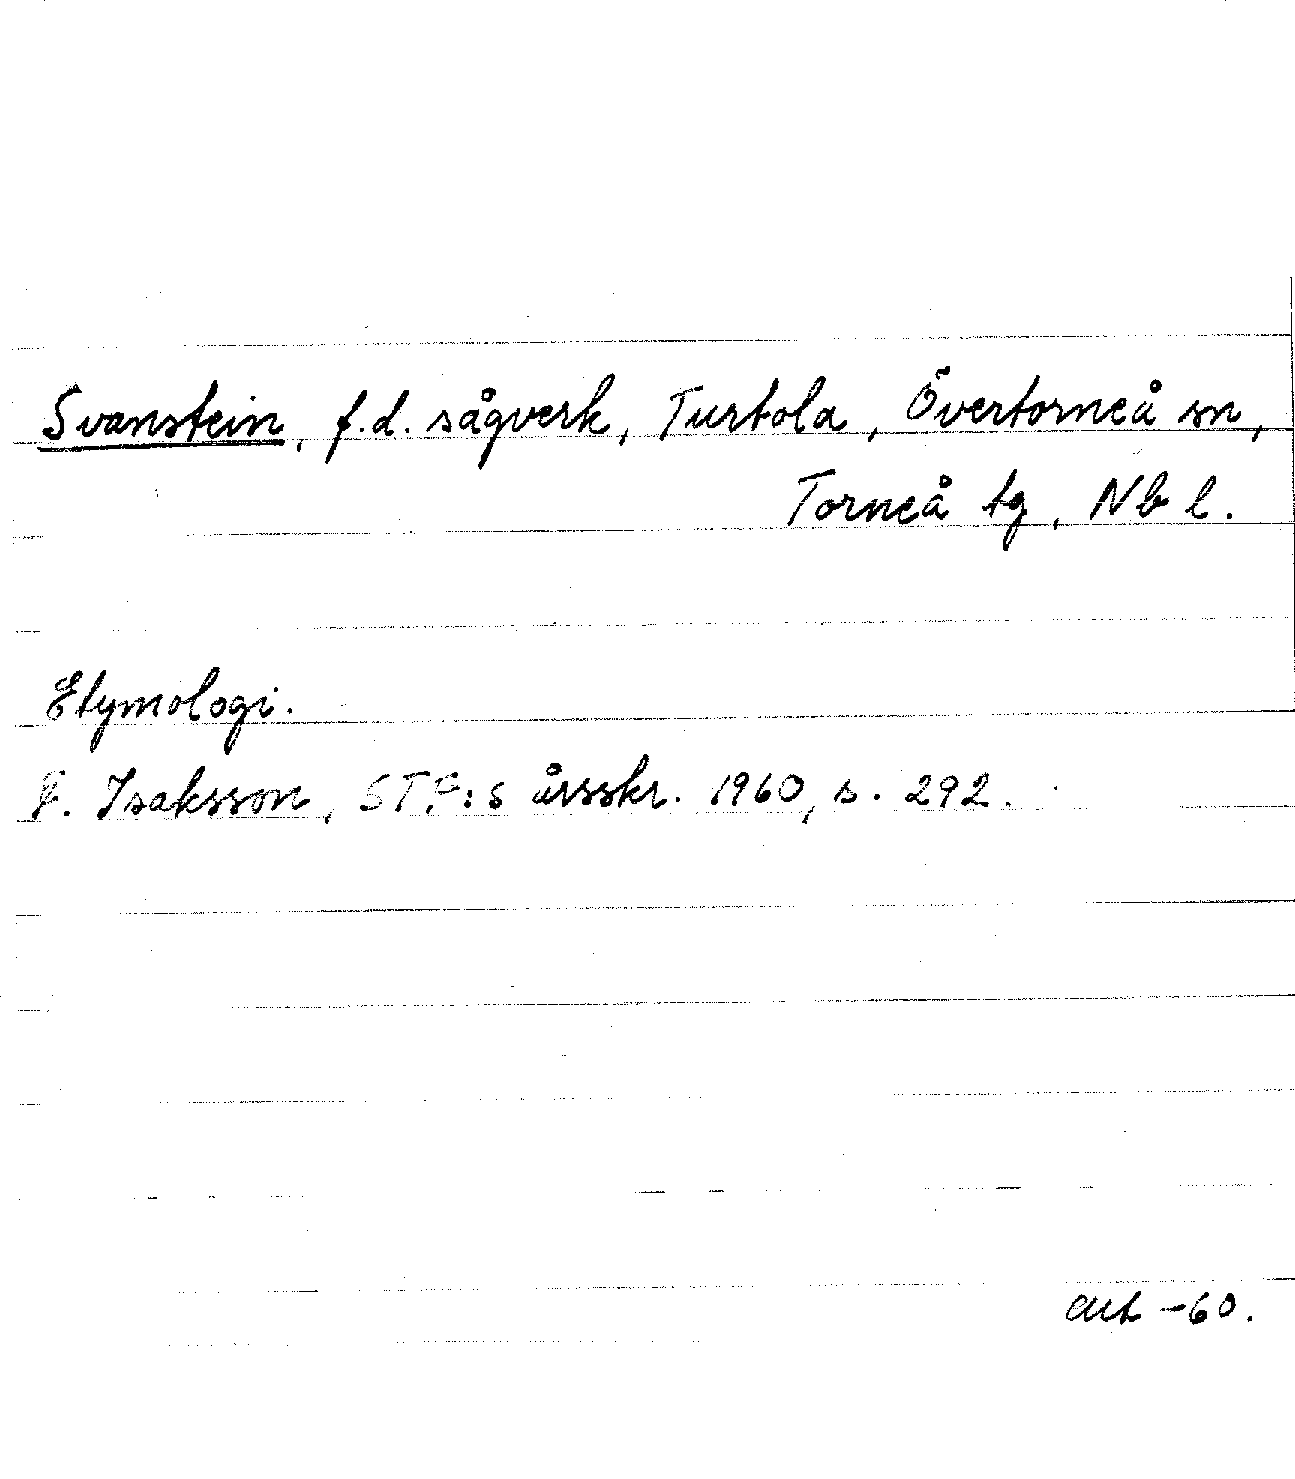 Svanstein, f.d. sågverk, Turtola, Övertorneå sn,
Torneå tg, Nb l.
Etymologi.
Isaksson, STF:s årsskr. 1960, s. 292.
-60.